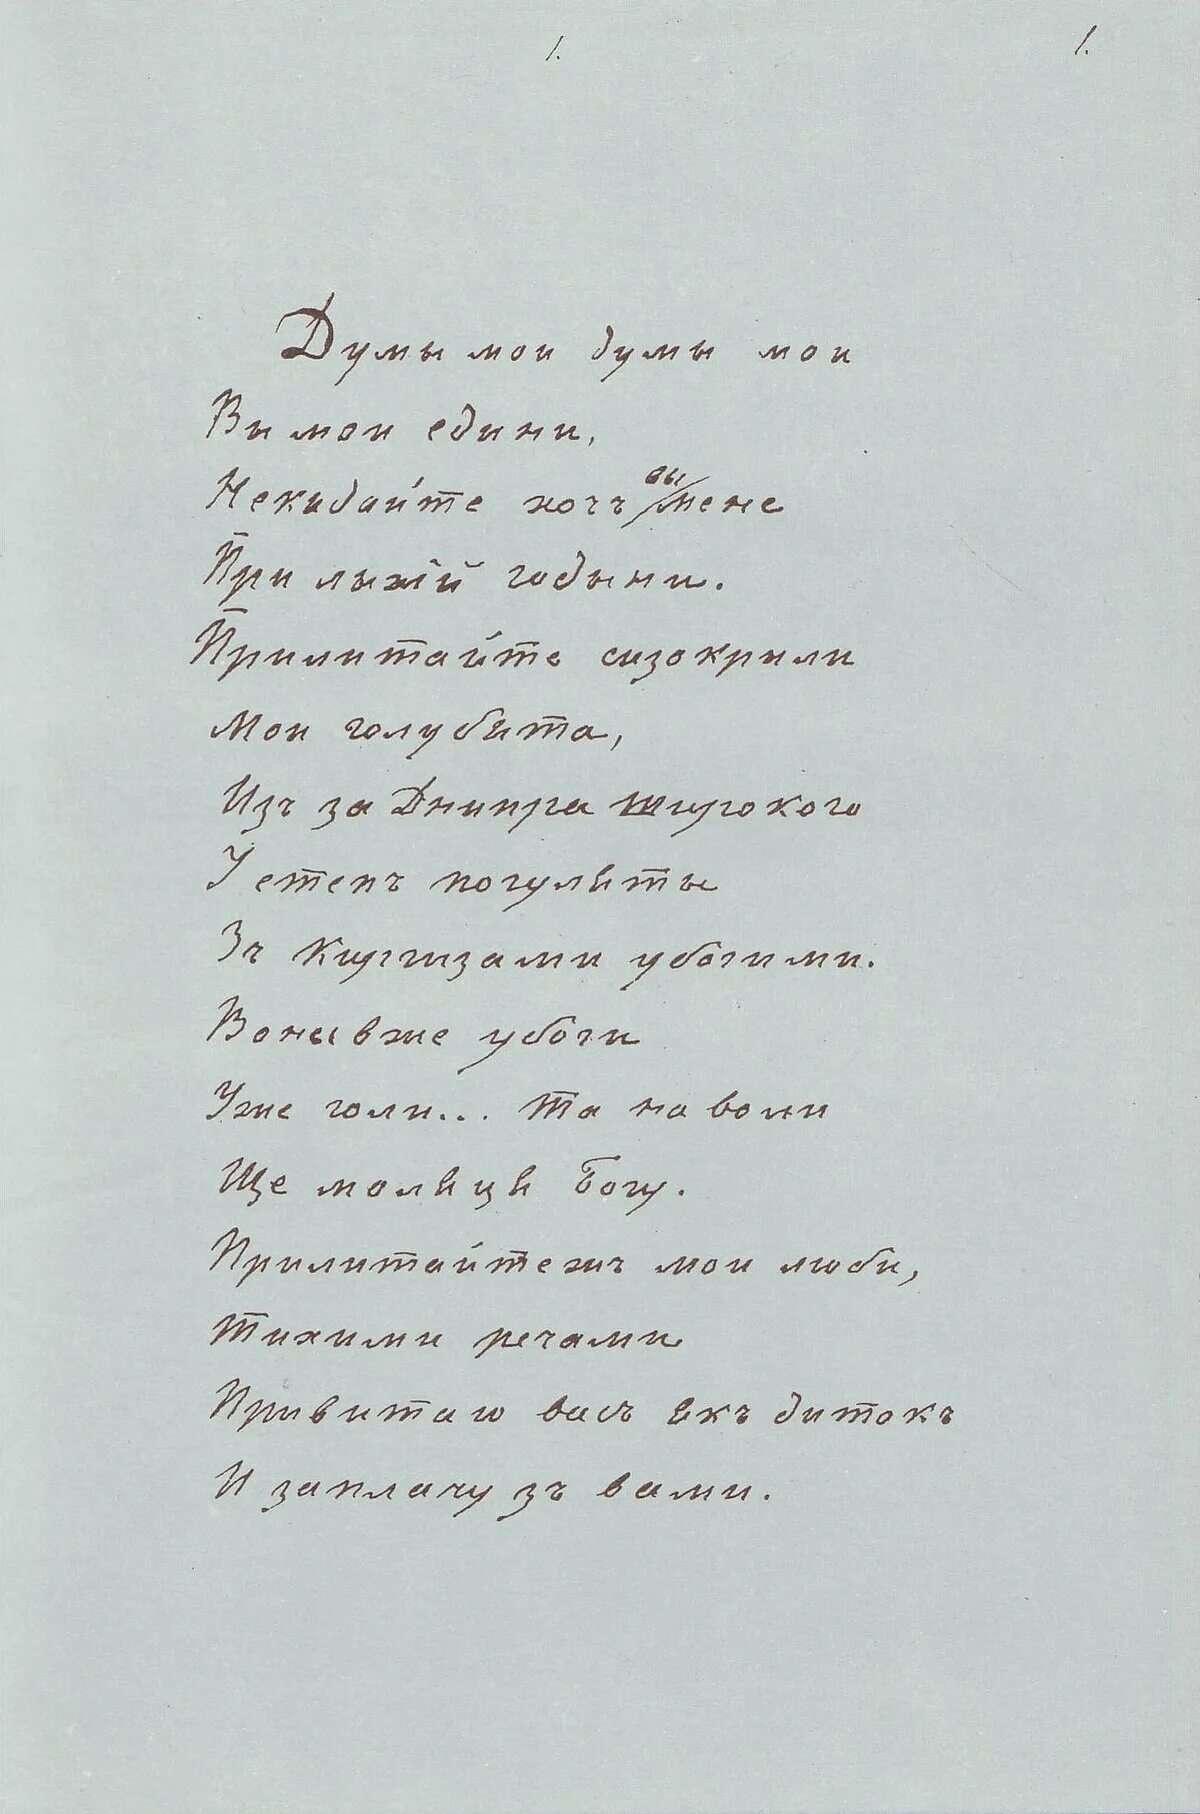 1. 1.
Думы мои думы мои
Вы мои едини,
Некидайте хочъ вы мене
При лыхій годыни.
Прилитайте сизокрыли
Мои голубята,
Изъ за Днипра широкого
У степъ погуляты
Зъ Киргизами убогими.
Воны вже убоги
Уже голи... Та на воли
Ще моляця Богу.
Прилитайтежъ мои люби,
Тихими речами
Привитаю васъ якъ дитокъ
И заплачу зъ вами.